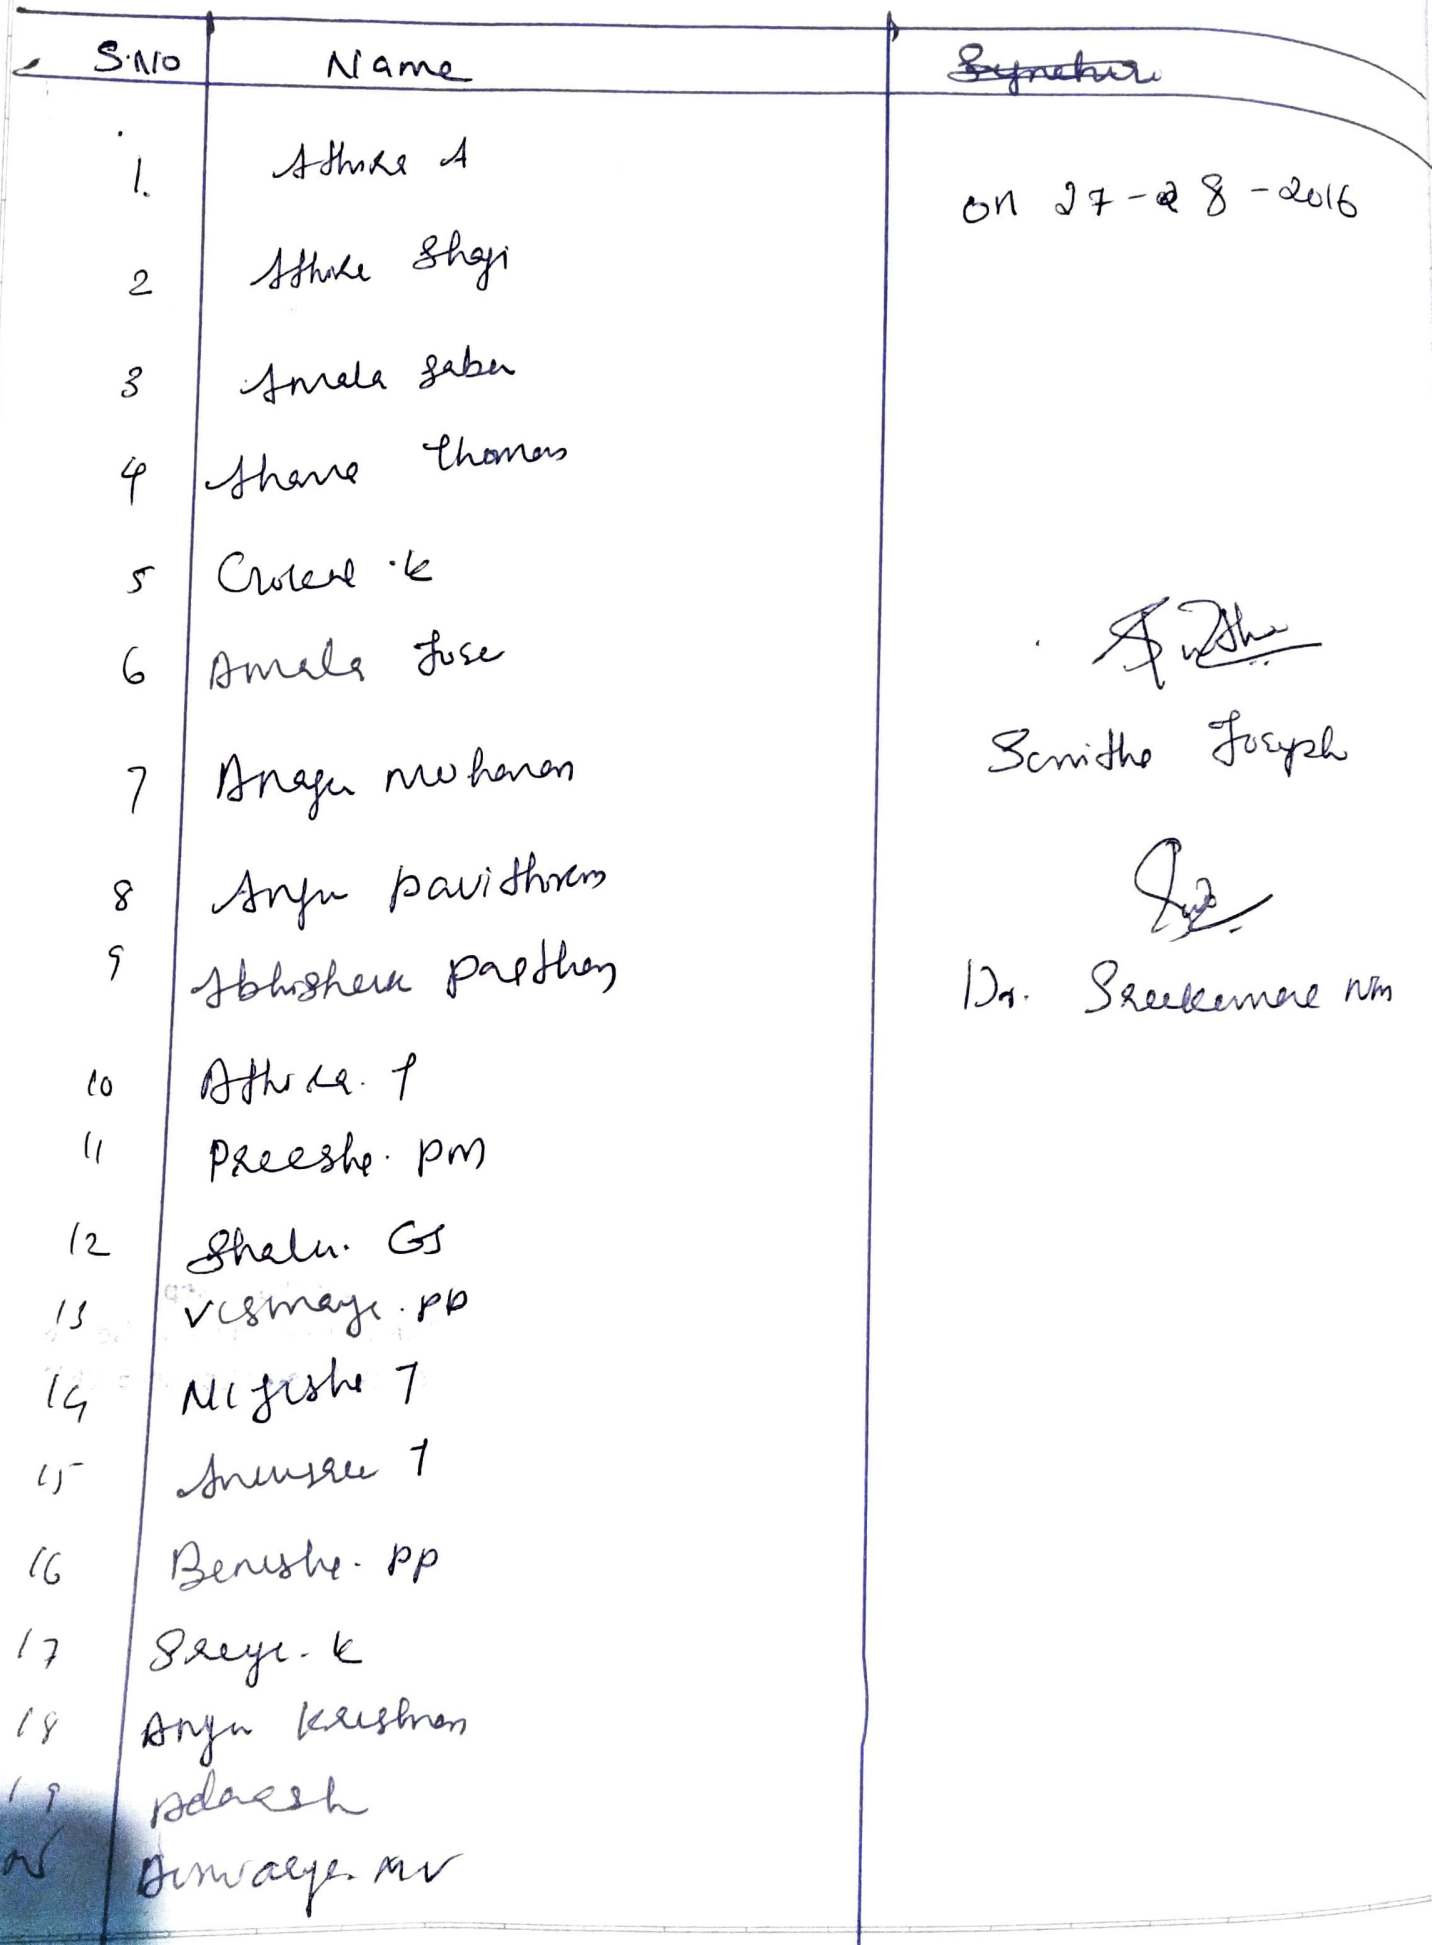 S.No Name Synature
1. Athira A
on 27-28-2016
2 Athira Shaji
3 Amala Sabu
4 Thomas
5 k
6 Amala Jose
7 Anagu mohanan
Sanitha Joseph
8 Anju pavithran
9 Abhishek
Dr. Sreekumar nm
10 Athira. P
11 Preeshe. pm
12 Shalu. GS
13 Vismaya. pp
14 Nijisha T
15 Anusree T
16 Benisha. pp
17 Sreya. k
18 Anju Krishnan
19 Adarsh
MV